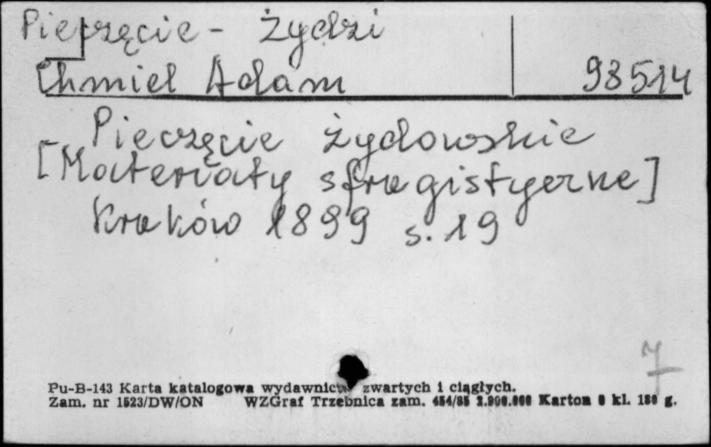 Pieczęcie - Żydzi
Chmiel Adam 98514
Pieczęcie żydowskie
[Materiały sfragistyczne]
Kraków 1899 s. 19
7
Pu-B-143 Karta katalogowa wydawnictw zwartych i ciągłych.
Zam. nr 1523/DW/ON WZGraf Trzebnica zam. 454/85 2.000.000 Karton 0 kl. 180 g.